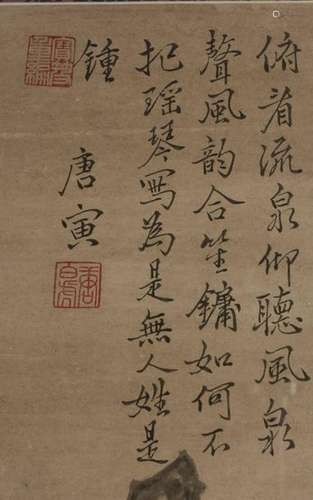 俯看流泉仰聽風泉
聲風韵合笙鏞如何不
把瑶琴寫為是無人姓是
鍾
唐寅